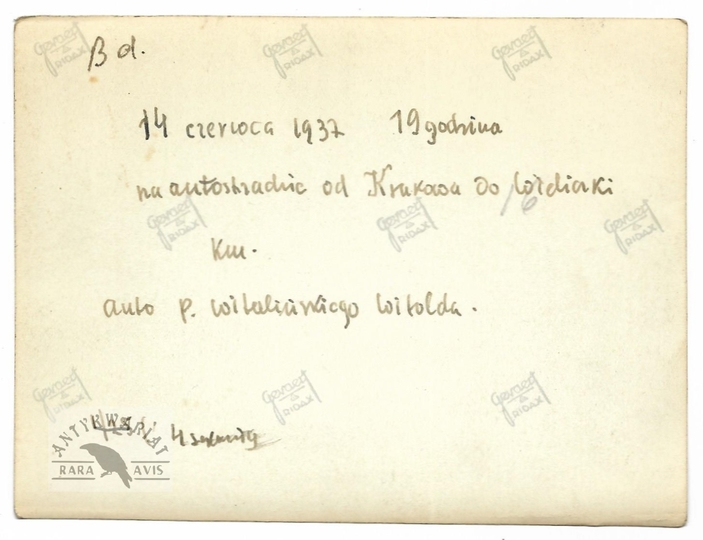 B d.
14 czerwca 1937 19 godzina
na autostradzie od Krakowa do
km.
auto p. Witalińskiego Witolda.
4
ANTYKWARIAT
RARA AVIS
Gevaert
RIDAX